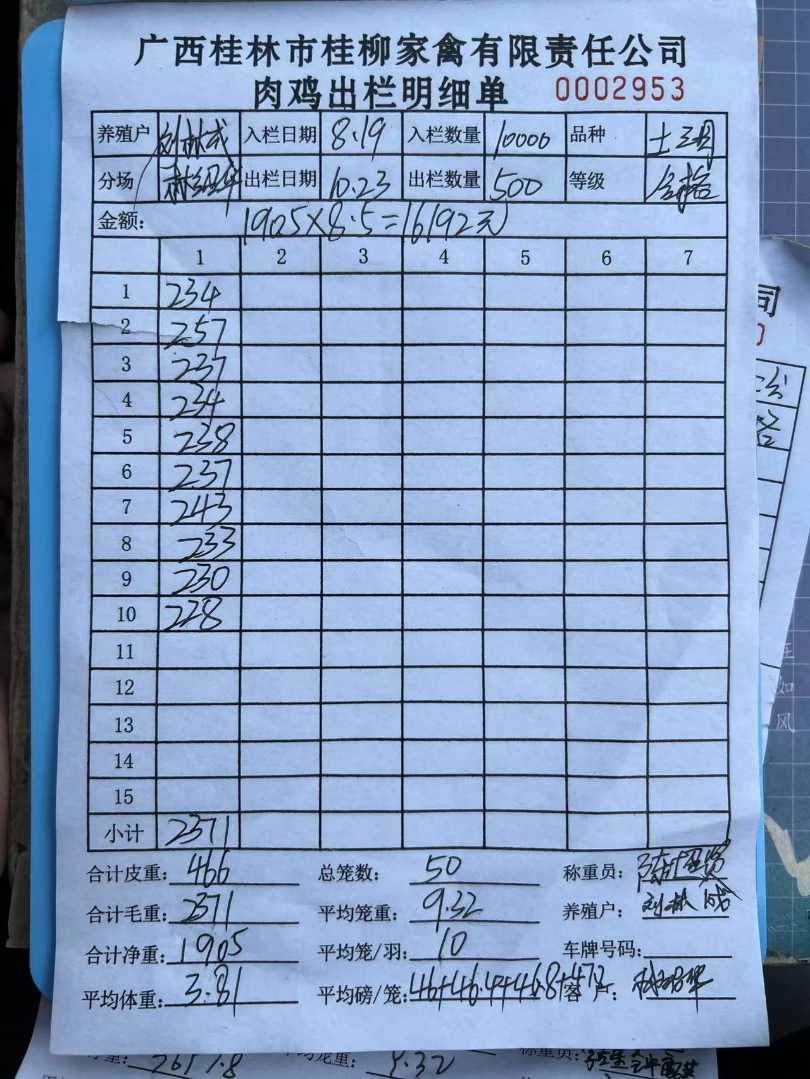 广西桂林市桂柳家禽有限责任公司
肉鸡出栏明细单 0002953
养殖户 刘林成 入栏日期 8.19 入栏数量 10000 品种 土
分场 出栏日期 10.23 出栏数量 500 等级 合格
金额: 1905×8.5=16192元
1 2 3 4 5 6 7
1 234
2 257
3 237
4 234
5 238
6 237
7 243
8 233
9 230
10 228
11
12
13
14
15
小计 2371
合计皮重: 466 总笼数: 50 称重员:
合计毛重: 2371 平均笼重: 9.32 养殖户: 刘林成
合计净重: 1905 平均笼/羽: 10 车牌号码:
平均体重: 3.81 平均磅/笼: 46+46.4+46.8+47.2 客户:
司
0
格
王
如
风
2617.8 平均笼重: 9.32 称重员: